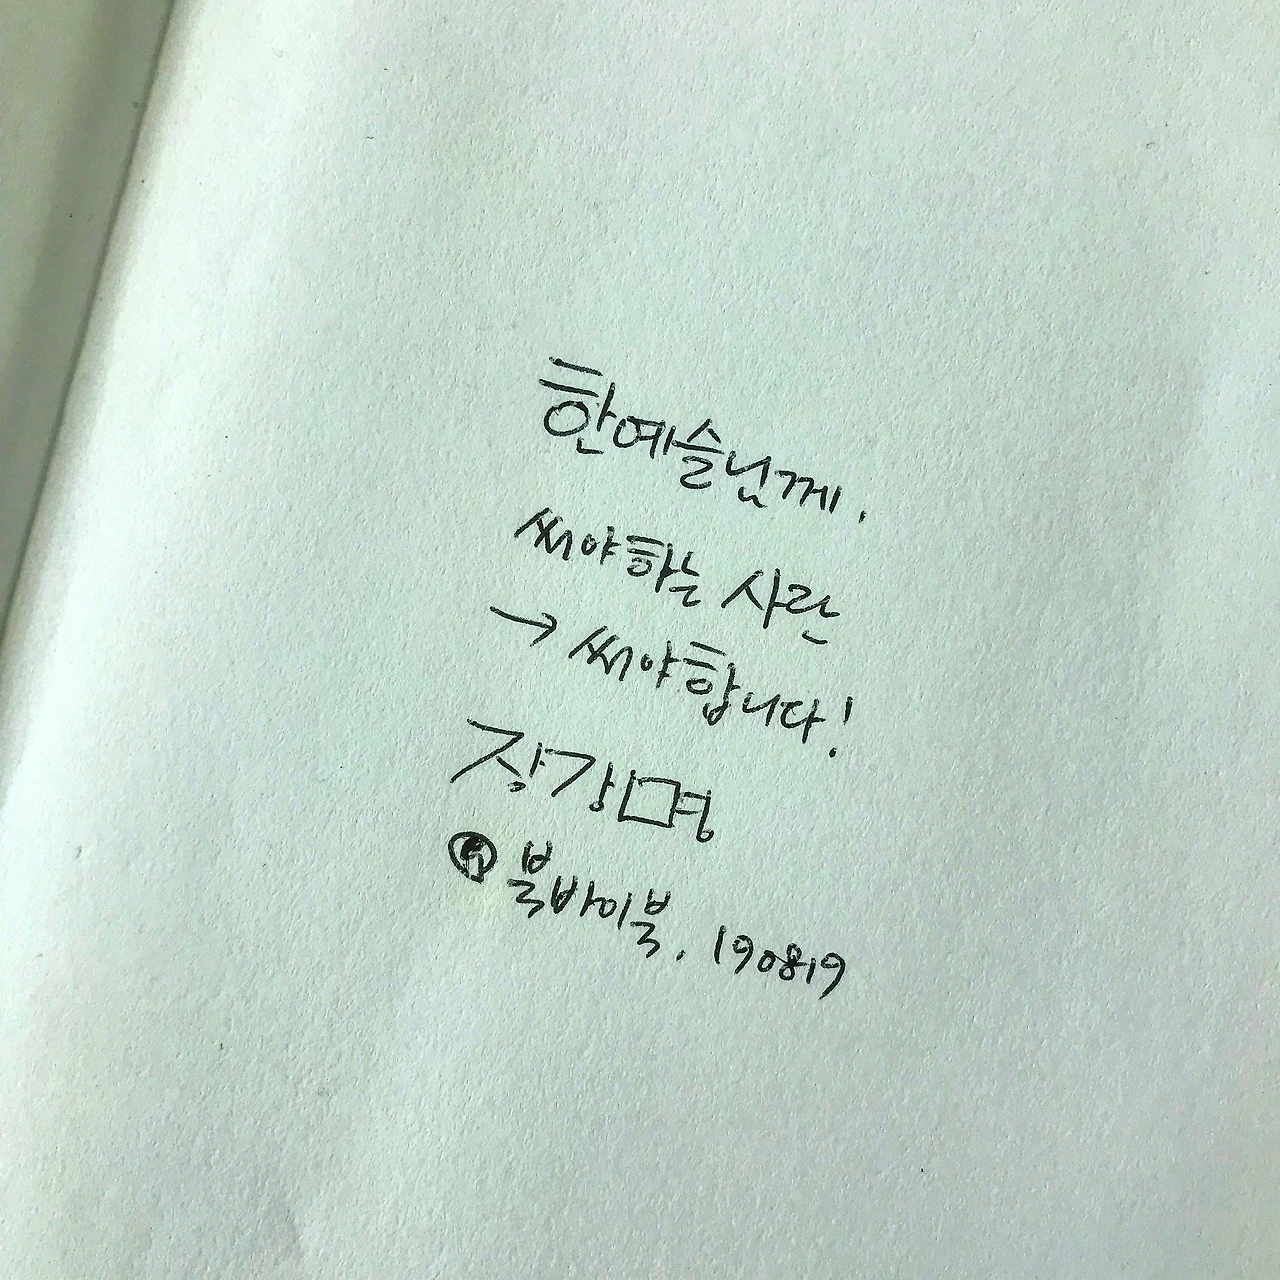 한예슬님께.
써야하는 사람
→ 써야합니다!
장강명
북바이북. 190819